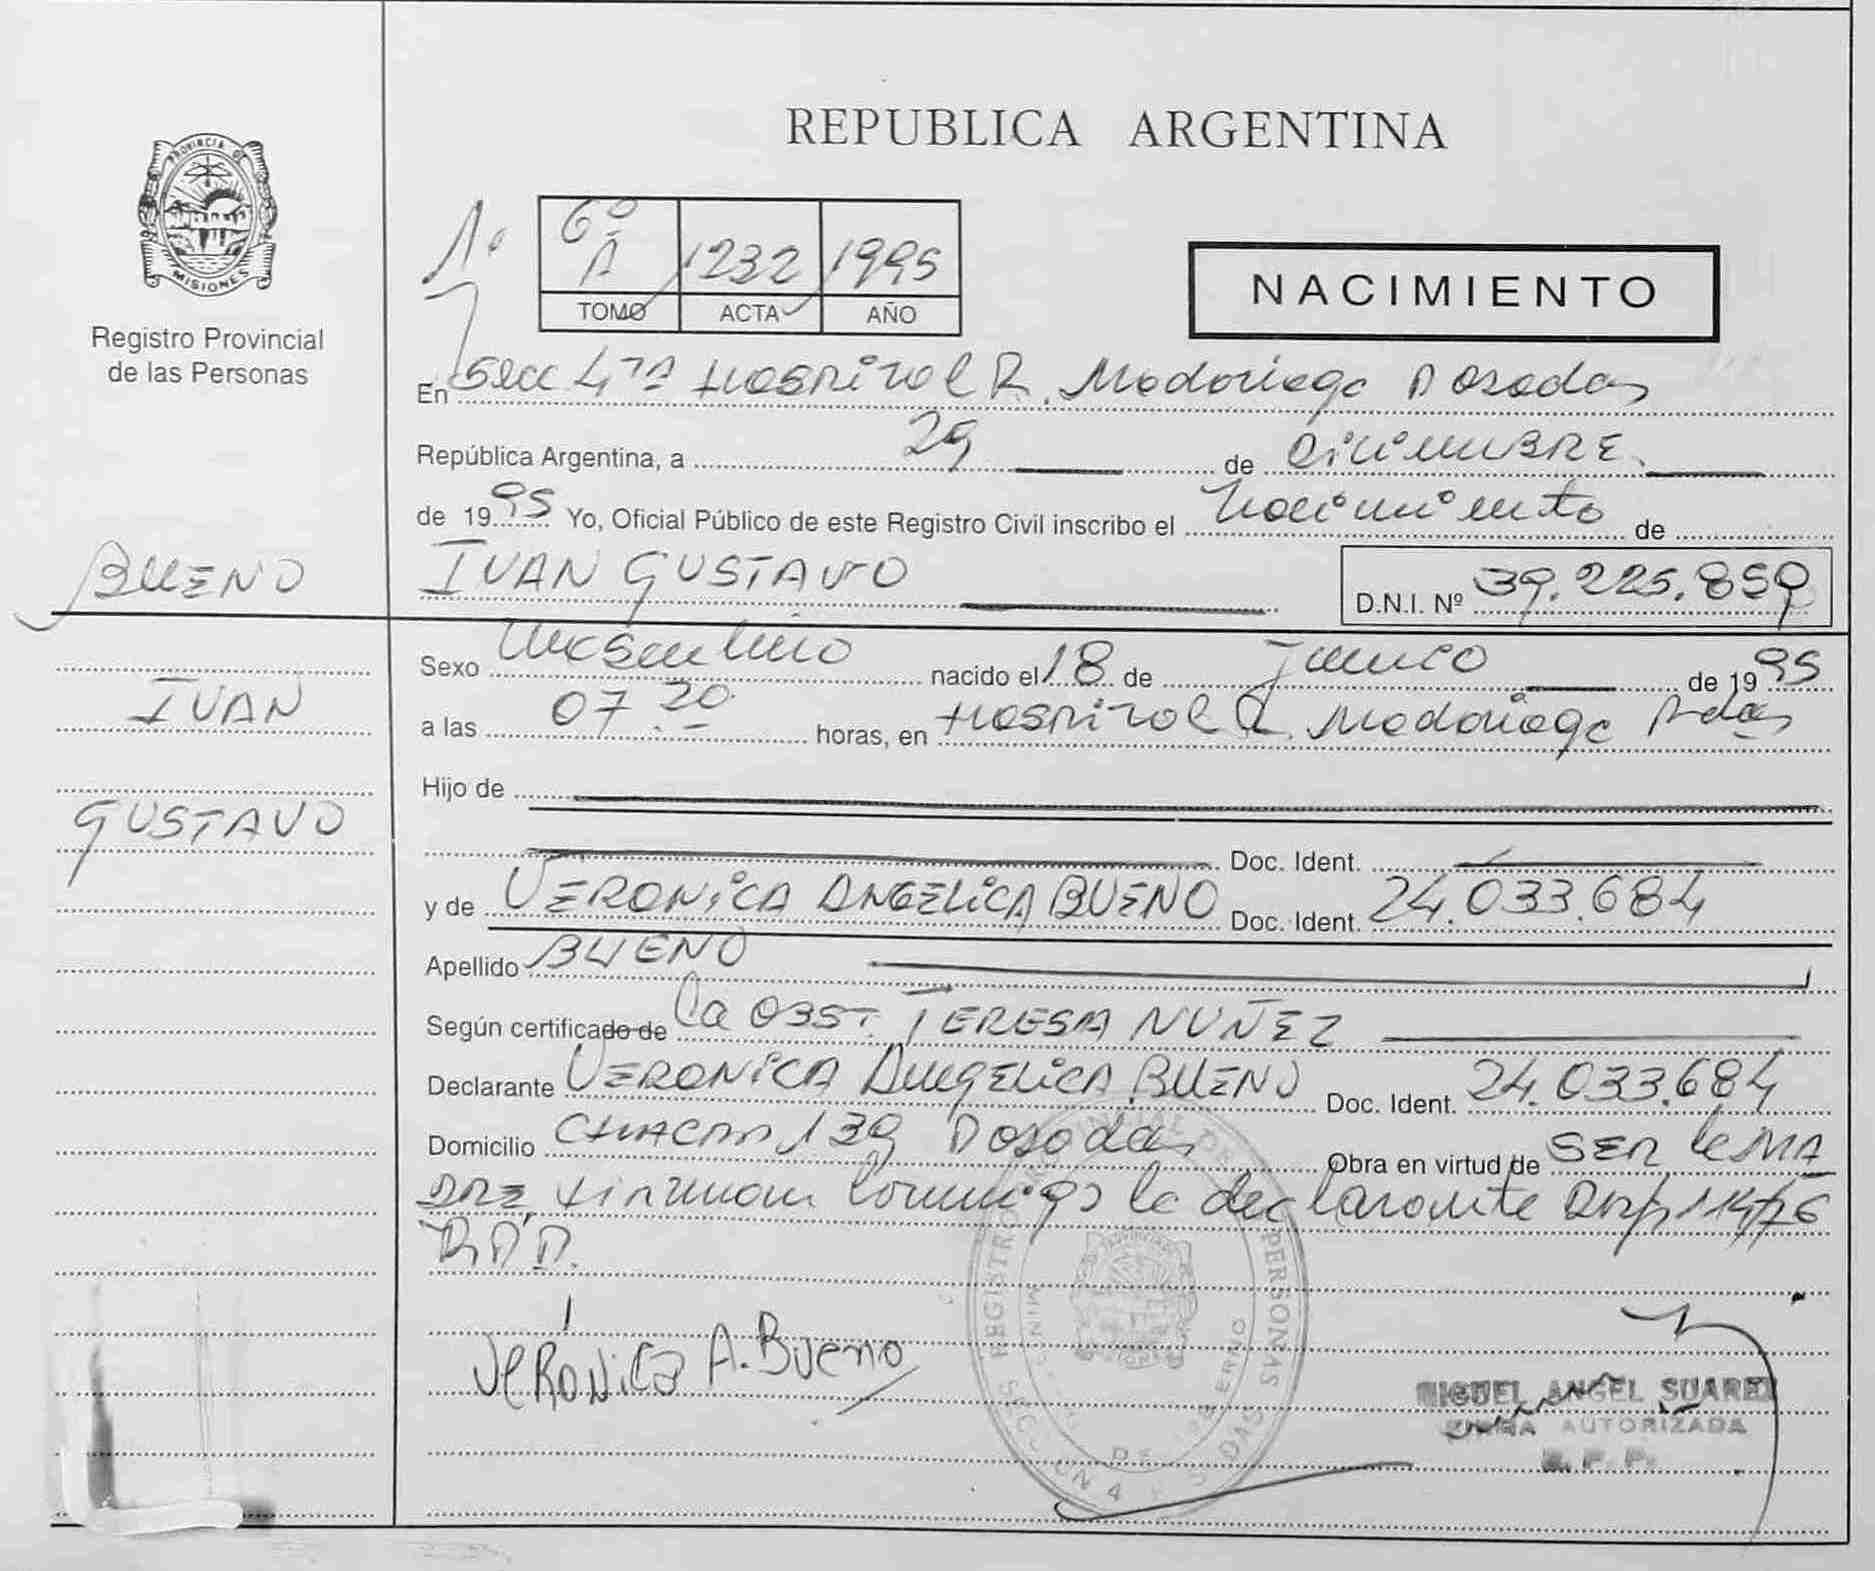 PROVINCIA DE
MISIONES
Registro Provincial
de las Personas
BUENO
IVAN
GUSTAVO
REPUBLICA ARGENTINA
1º 6º A 1232 1995
TOMO ACTA AÑO
NACIMIENTO
En Secc 4ta Hospital R. Madariaga Posadas
República Argentina, a 29 de Diciembre
de 1995 Yo, Oficial Público de este Registro Civil inscribo el nacimiento de
IVAN GUSTAVO D.N.I. Nº 39.225.859
Sexo masculino nacido el 18 de de 1995
a las 07.20 horas, en Hospital R. Madariaga Pdas
Hijo de
Doc. Ident.
y de VERONICA ANGELICA BUENO Doc. Ident. 24.033.684
Apellido BUENO
Según certificado de la OBST. TERESA NUÑEZ
Declarante VERONICA ANGELICA BUENO Doc. Ident. 24.033.684
Domicilio 139 Posadas Obra en virtud de SER la MA
DRE firman conmigo la declarante
Verónica A. Bueno
MIGUEL ANGEL SUAREZ
FIRMA AUTORIZADA
R. P. P.